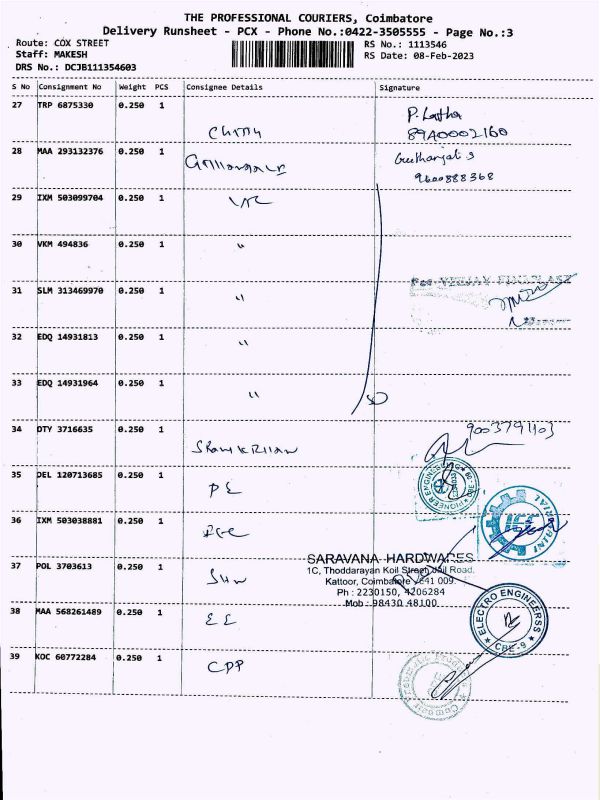 THE PROFESSIONAL COURIERS, Coimbatore
Delivery Runsheet - PCX - Phone No.:0422-3505555 - Page No.:3
Route: COX STREET
RS No.: 1113546
Staff: MAKESH
RS Date: 08-Feb-2023
DRS No.: DCJB111354603
S No Consignment No Weight PCS Consignee Details Signature
27 TRP 6875330 0.250 1
P. Latha
89A0002160
28 MAA 293132376 0.250 1
Geethanjali S
9600888368
29 IXM 503099704 0.250 1
30 VKM 494836 0.250 1 "
31 SLM 313469970 0.250 1 "
32 EDQ 14931813 0.250 1 "
33 EDQ 14931964 0.250 1 "
34 DTY 3716635 0.250 1
9003791103
35 DEL 120713685 0.250 1 PE
36 IXM 503038881 0.250 1
37 POL 3703613 0.250 1
SARAVANA HARDWARES
1C, Thoddarayan Koil Street, Jail Road,
Kattoor, Coimbatore 641 009.
Ph : 2230150, 4206284
Mob : 98430 48100
38 MAA 568261489 0.250 1 EE
ELECTRO ENGINEERSS
CBE-9
39 KOC 60772284 0.250 1 CPP